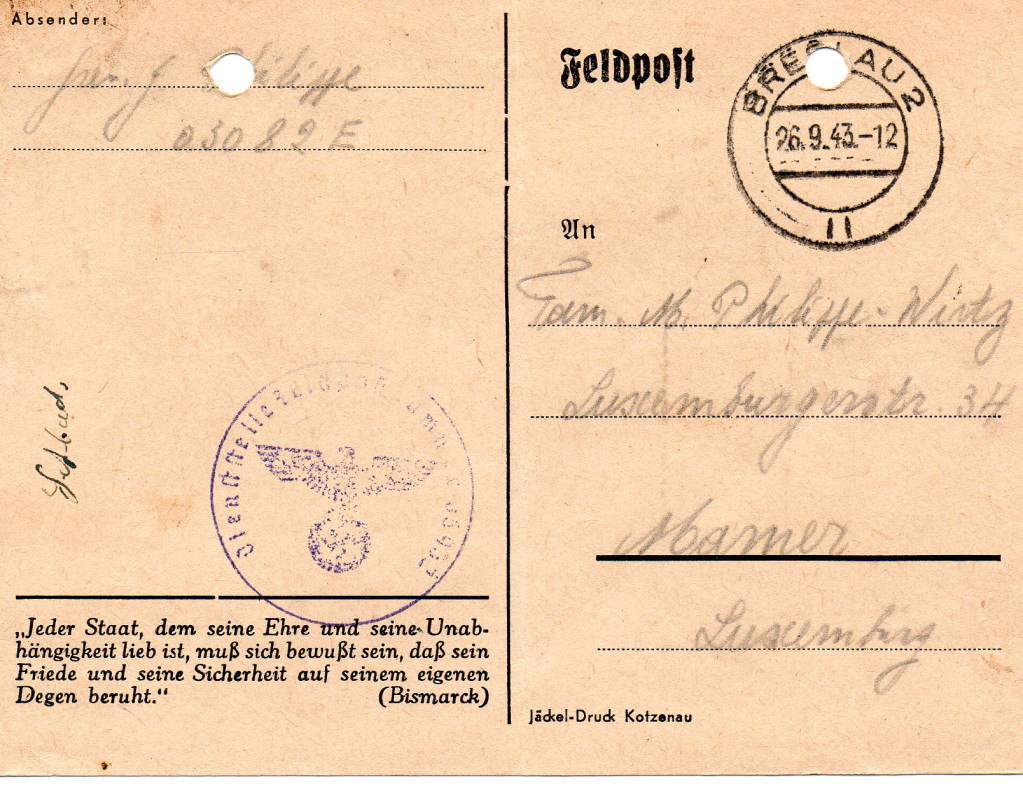 Absender:
Philippe
03082 E
Feldpost
BRESLAU 2
26.9.43.-12
11
An
Fam. M. Philippe-Wirtz
Luxemburgerstr. 34
Mamer
Luxemburg
Dienststelle Feldpostnummer
„Jeder Staat, dem seine Ehre und seine Unab-
hängigkeit lieb ist, muß sich bewußt sein, daß sein
Friede und seine Sicherheit auf seinem eigenen
Degen beruht.“ (Bismarck)
Jäckel-Druck Kotzenau